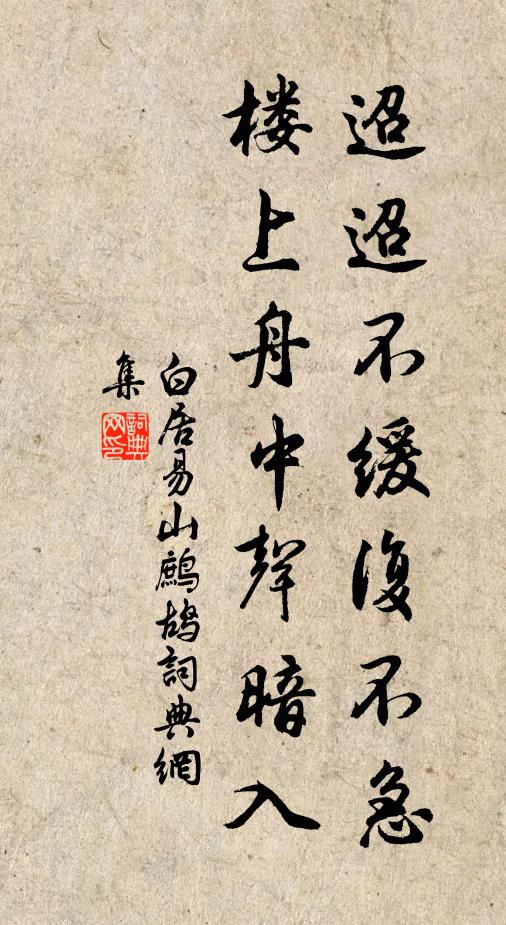 迢迢不缓復不急
楼上舟中聲暗入
白居易山鷓鴣詞典網
集
詞典網印